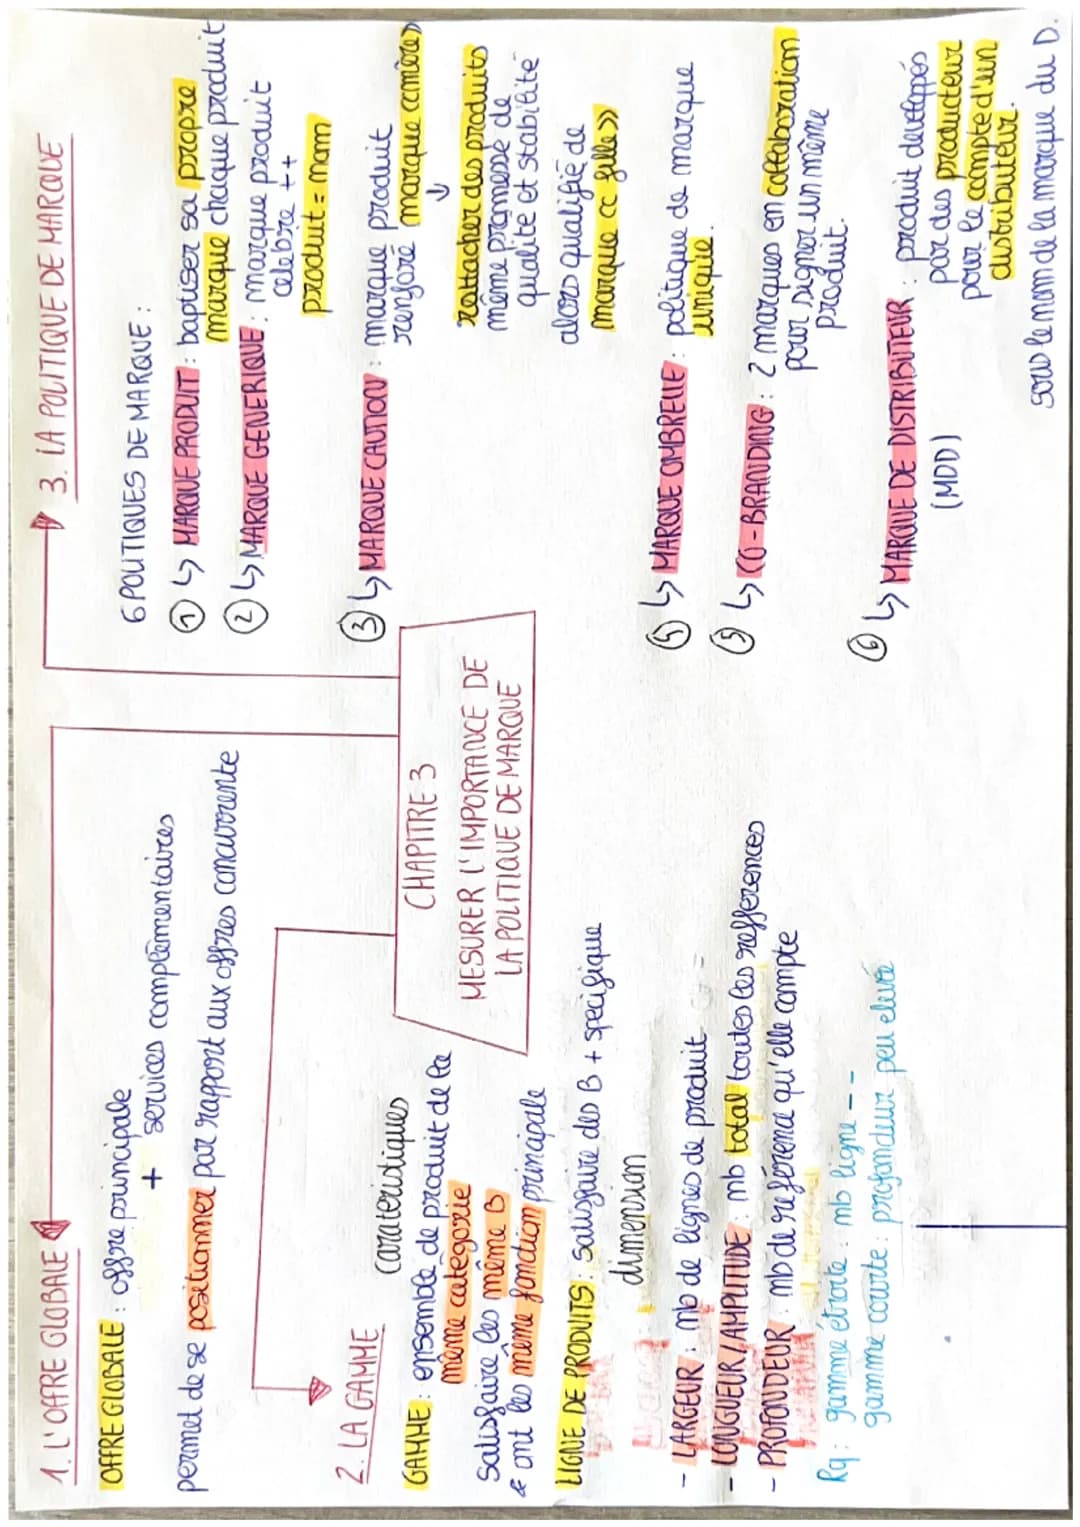 1. L'OFFRE GLOBALE
OFFRE GLOBALE : offre principale
+ services complémentaires
permet de se positionner par rapport aux offres concurrente
2. LA GAMME
caratéristiques
GAMME : ensemble de produit de la
même catégorie
Satisfaire les même B
& ont les même fonction principale
LIGNE DE PRODUITS : satisfaire des B + spécifique
dimension
- LARGEUR : nb de lignes de produit
- LONGUEUR/AMPLITUDE : nb total toutes les refférences
- PROFONDEUR : nb de référence qu'elle compte
Rq : gamme étroite : nb ligne --
gamme courte : profondeur peu elevé
CHAPITRE 3
MESURER L'IMPORTANCE DE
LA POLITIQUE DE MARQUE
3. LA POLITIQUE DE MARQUE
6 POLITIQUES DE MARQUE :
① ↳ MARQUE PRODUIT : baptiser sa propre
marque chaque produit
② ↳ MARQUE GENERIQUE : marque produit
celebre ++
produit = nom
③ ↳ MARQUE CAUTION : marque produit
renforé marque «mère»
↓
rattacher des produits
même promesse de
qualite et stabilité
alors qualifié de
marque « fille »
↳ MARQUE OMBRELLE : politique de marque
unique.
⑤ ↳ CO-BRANDING : 2 marques en collaboration
pour signer un même
produit.
⑥ ↳ MARQUE DE DISTRIBUTEUR : produit developpés
(MDD)
par des producteur
pour le compte d'un
distributeur.
sous le nom de la marque du D.